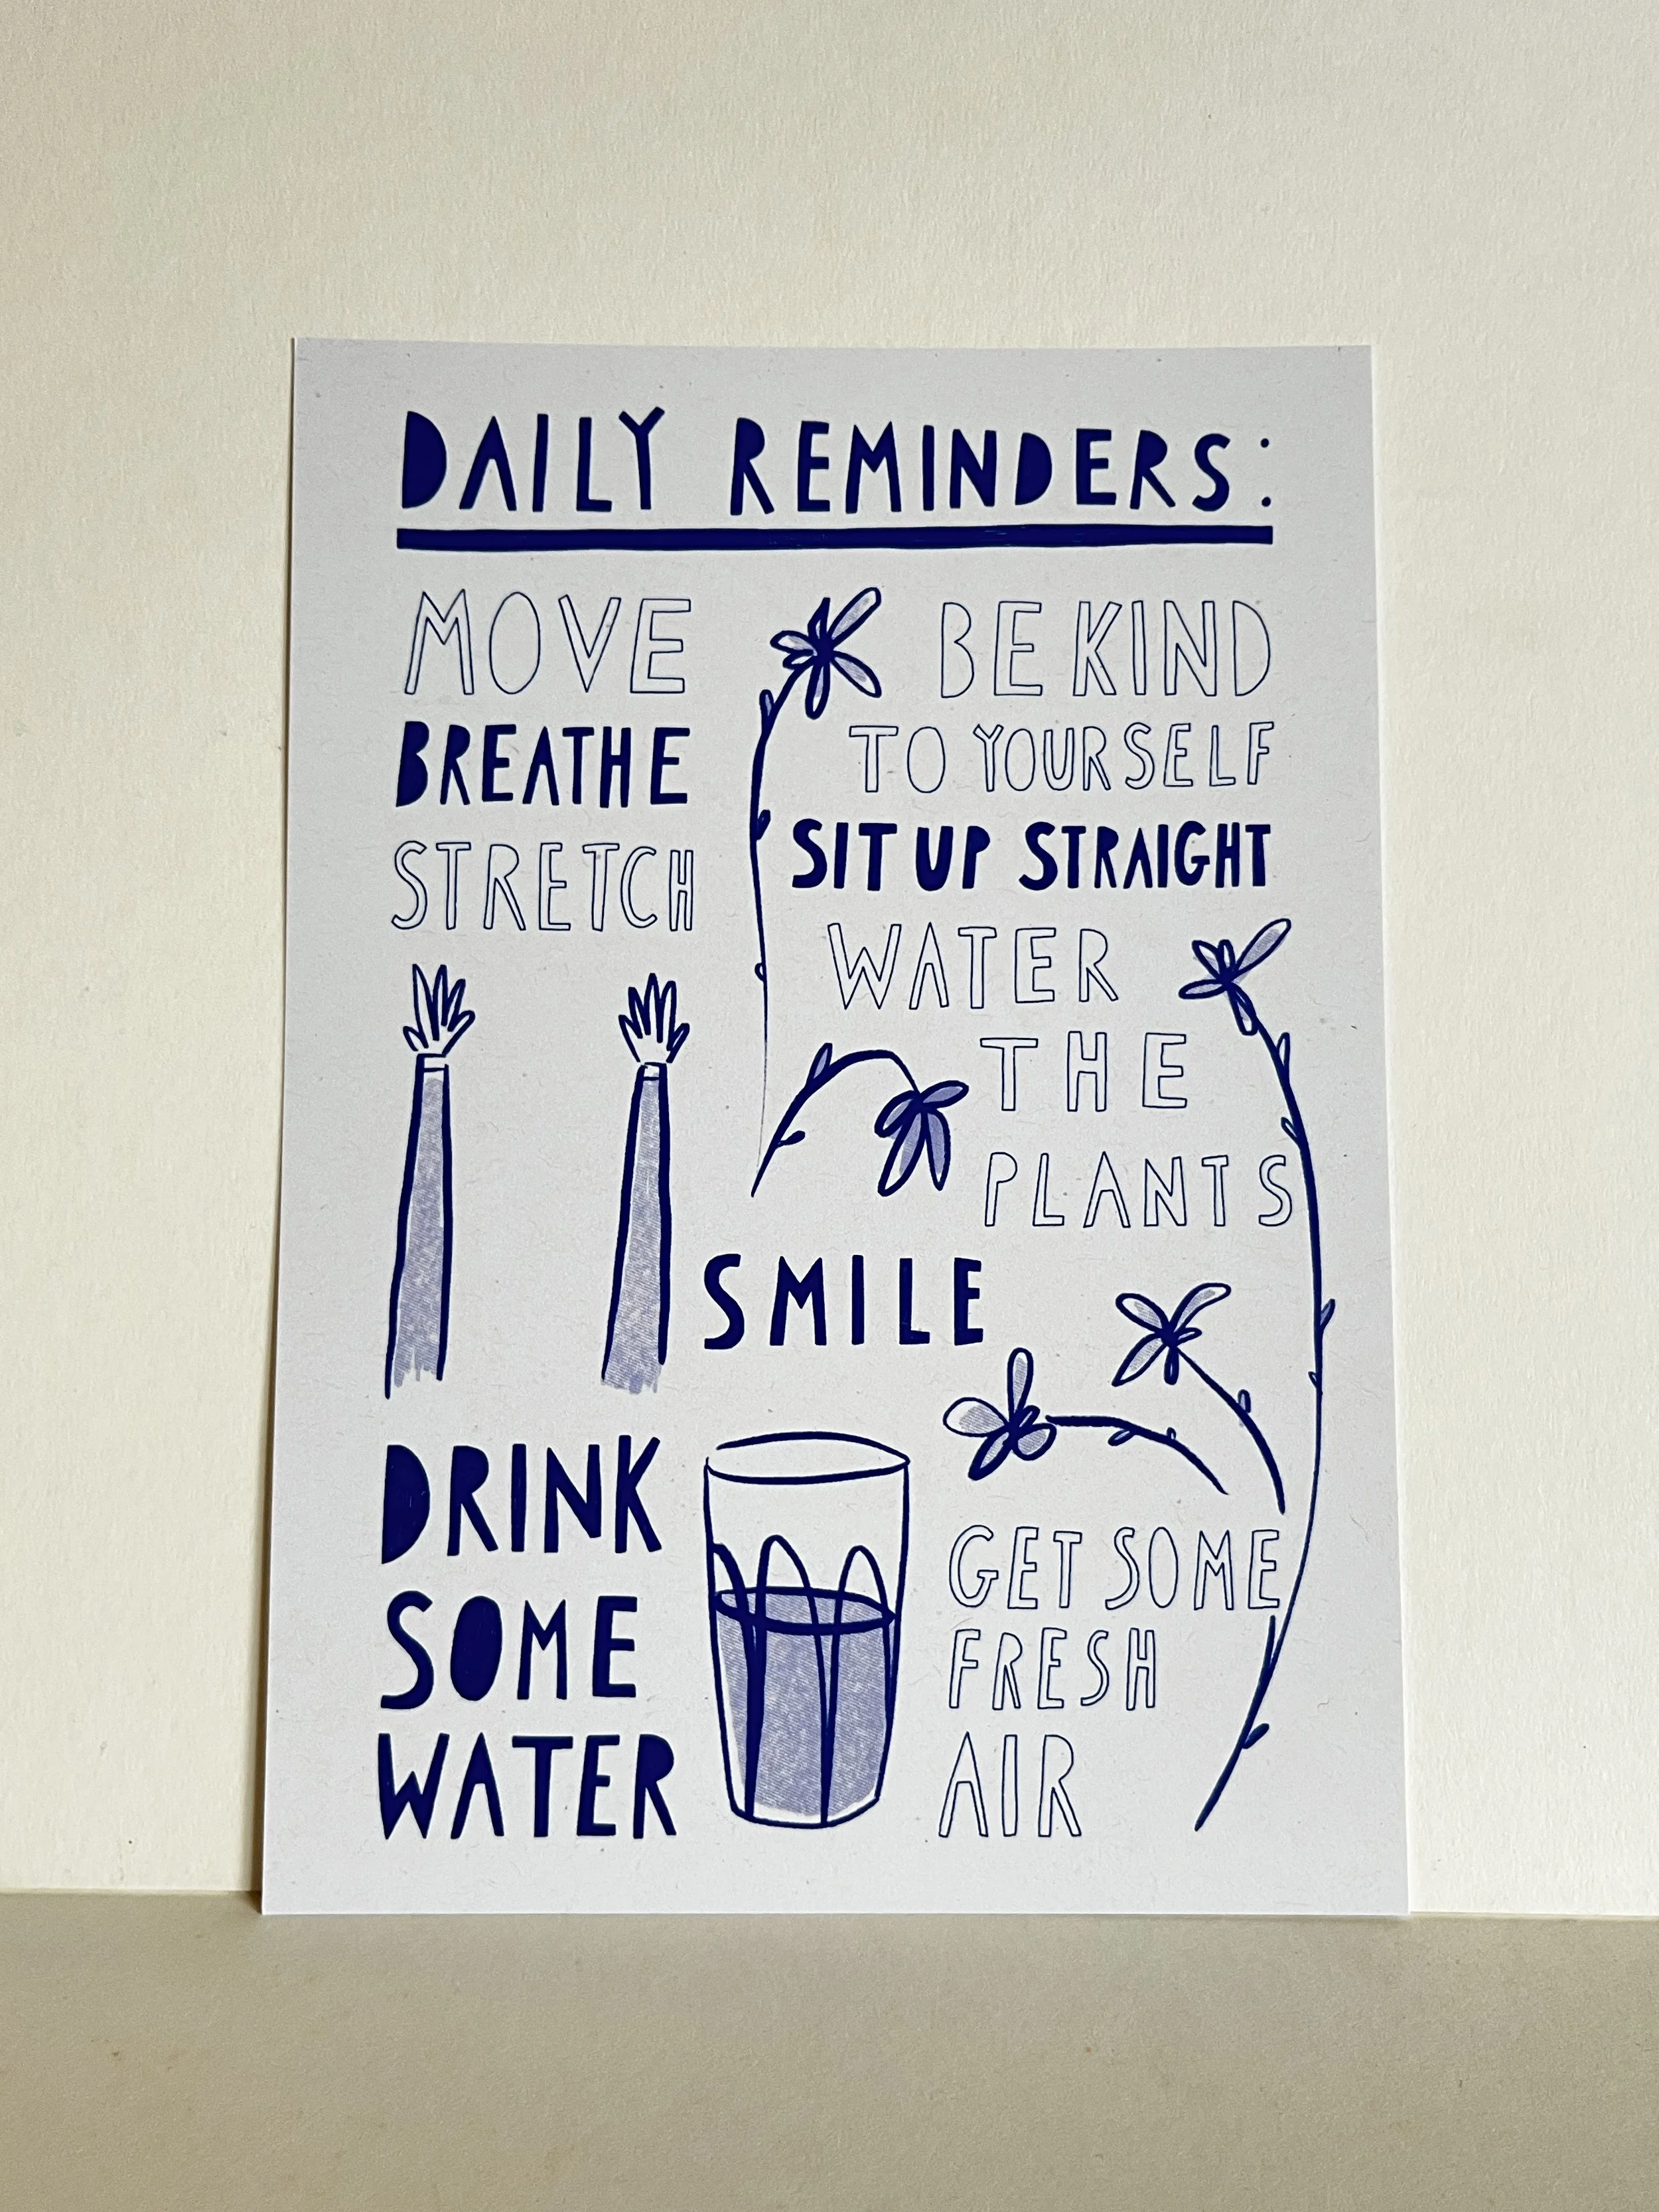 DAILY REMINDERS:
MOVE
BREATHE
STRETCH
BE KIND
TO YOURSELF
SIT UP STRAIGHT
WATER
THE
PLANTS
SMILE
DRINK
SOME
WATER
GET SOME
FRESH
AIR